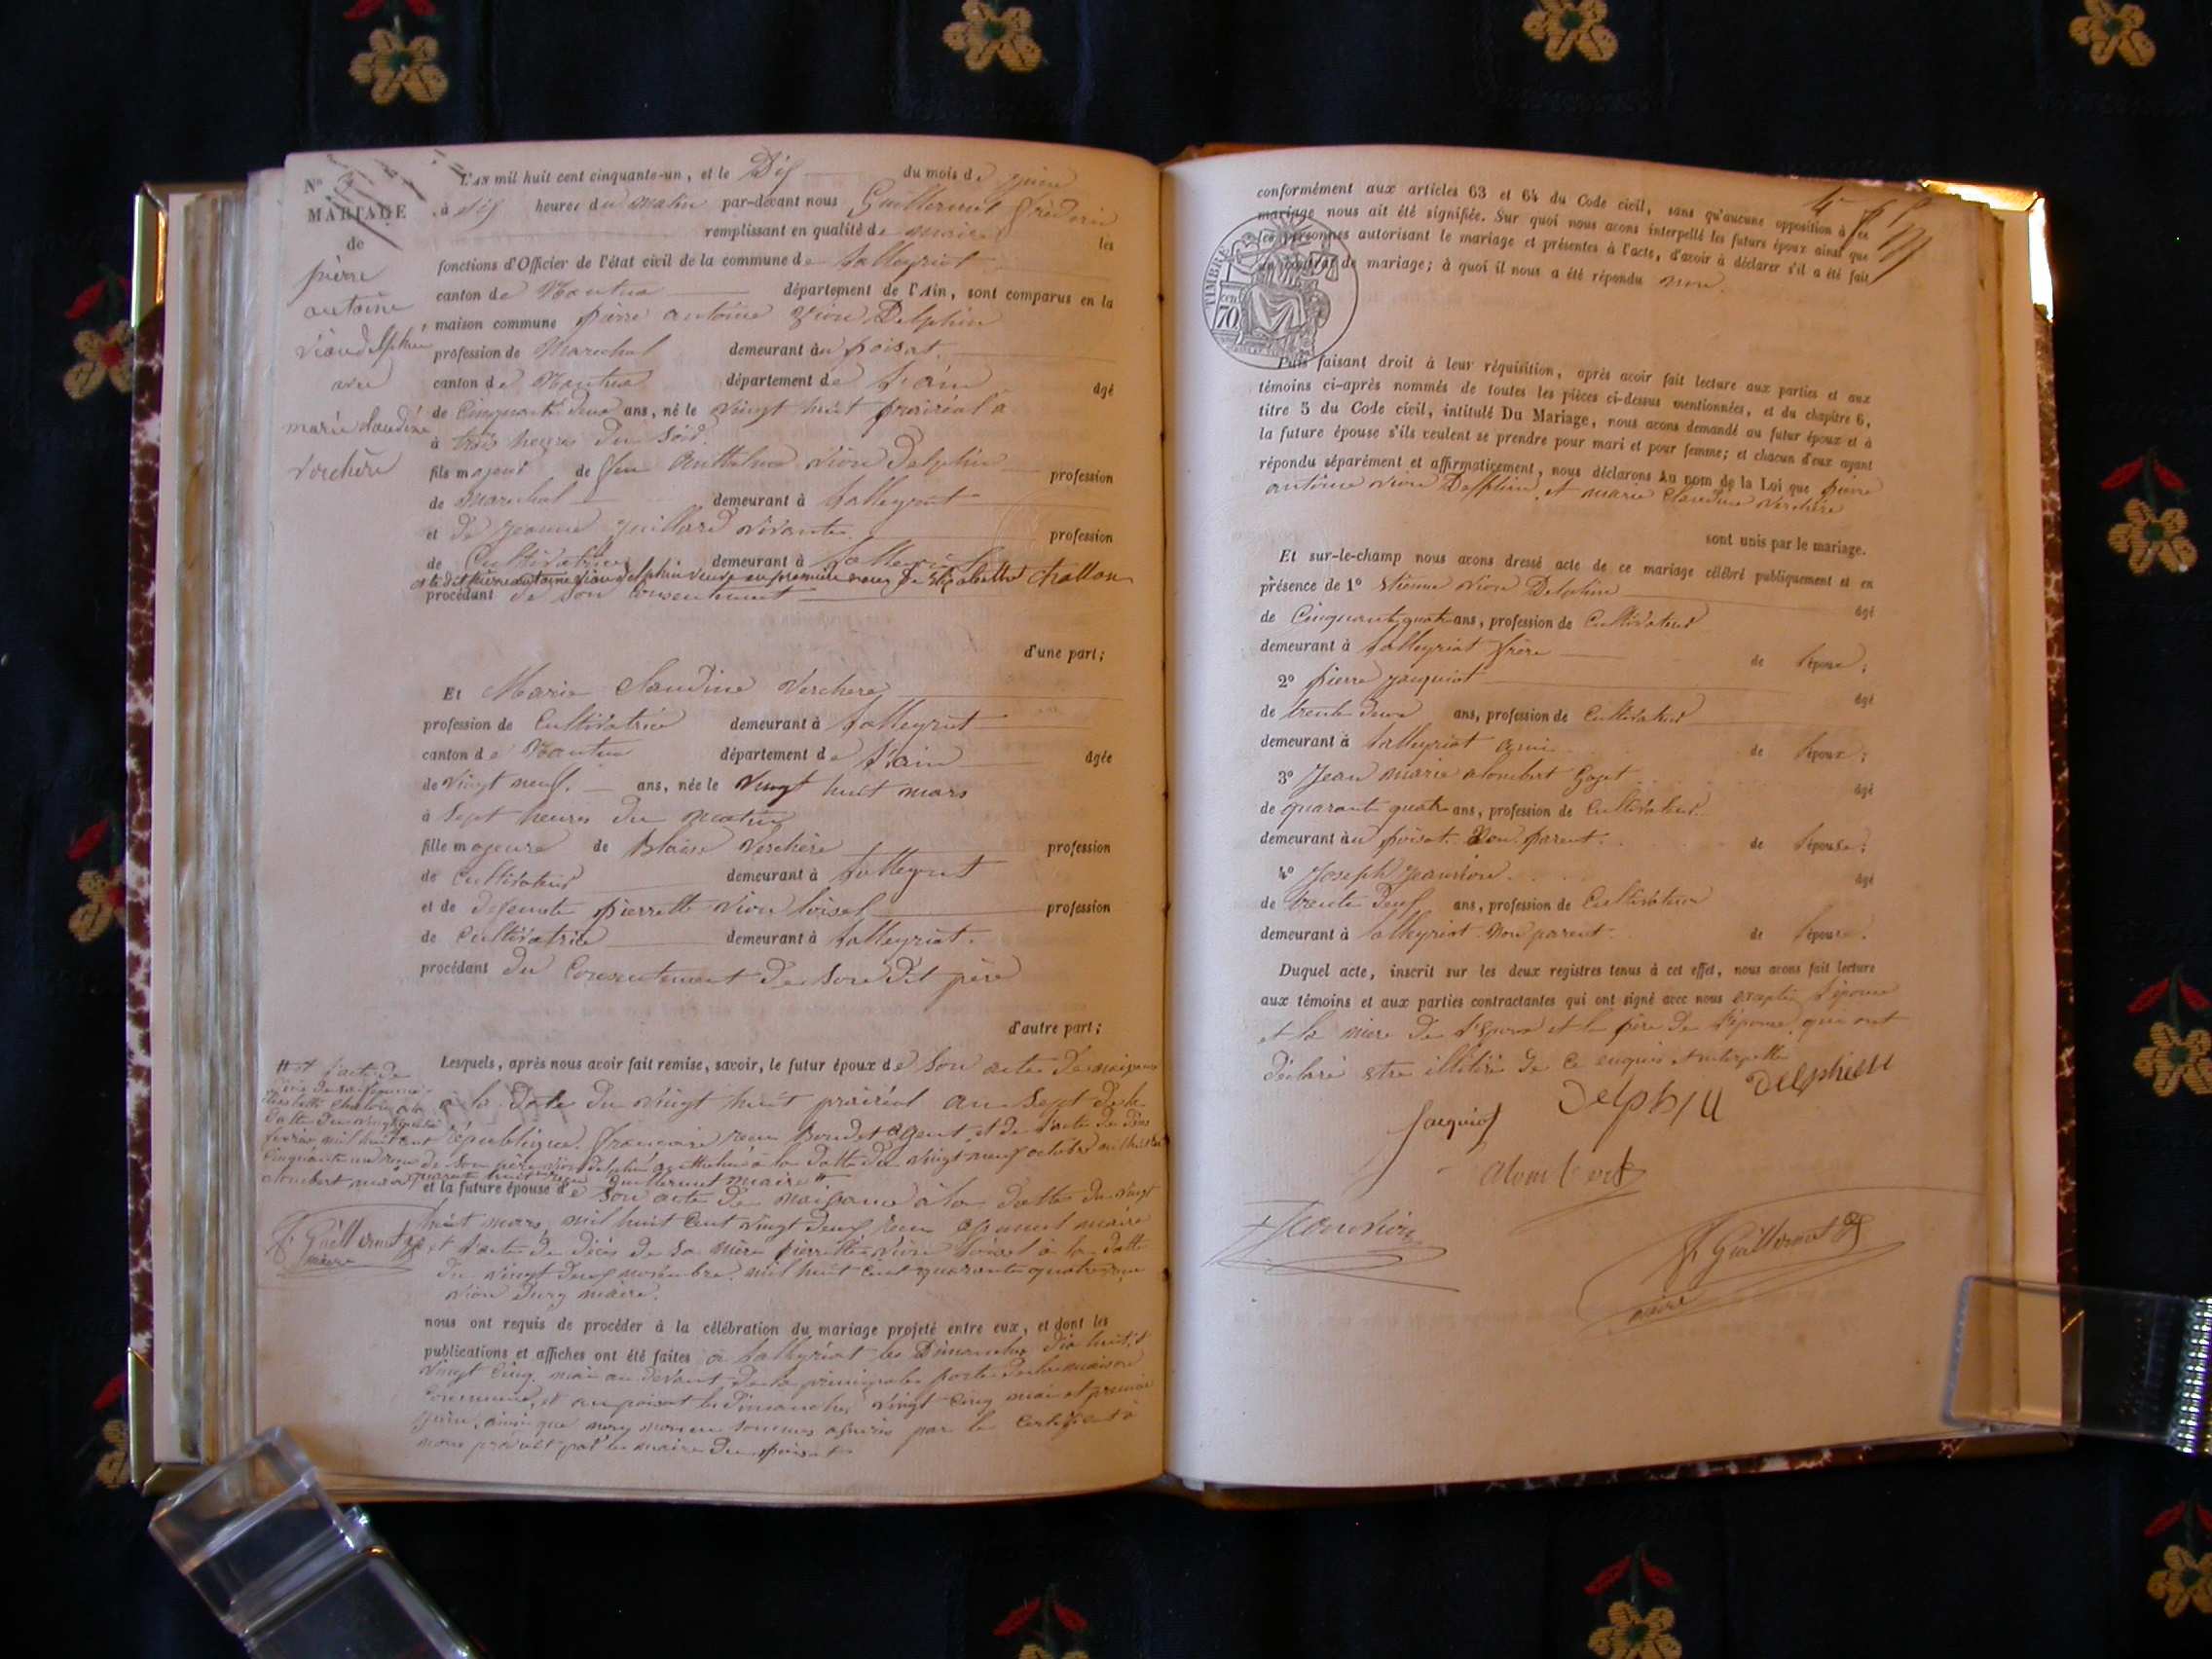 No 3
MARIAGE
de
pierre
antoine
viondelphin
avec
marie claudine
verchère
L'AN mil huit cent cinquante-un, et le Dix du mois de juin
à dix heures du matin par-devant nous Guillermet frédéric
remplissant en qualité de maire les
fonctions d'Officier de l'état civil de la commune de Lalleyriat
canton de Nantua département de l'Ain, sont comparus en la
maison commune pierre antoine vion Delphin
profession de Marechal demeurant au poisat
canton de Nantua département de l'ain âgé
de Cinquante deux ans, né le vingt huit prairéal
à trois heures du soir.
fils majeur de feu Anthelme vion Delphin profession
de Marechal demeurant à Lalleyriat
et de jeanne juillard vivante profession
de Cultivatrice demeurant à Lalleyriat
et le dit pierre antoine vion delphin veuf en première noces de elizabethe Challon
procédant de son consentement
d'une part;
Et Marie Claudine Verchere
profession de Cultivatrice demeurant à Lalleyriat
canton de Nantua département de l'ain âgée
de vingt neuf. ans, née le vingt huit mars
à Sept heures du matin
fille majeure de Blaise Verchère profession
de Cultivateur demeurant à Lalleyriat
et de defunte pierrette vion loisel profession
de Cultivatrice demeurant à Lalleyriat.
procédant du Consentement de son dit père
d'autre part;
Lesquels, après nous avoir fait remise, savoir, le futur époux de son acte de naissance
à la Date du vingt huit prairéal an Sept de la
république française et de l'acte de Décès
de son père vion delphin à la datte du vingt neuf octobre mil huit cent
quarante huit Guillermet maire #
et la future épouse de son acte de naissance à la datte du vingt
huit mars mil huit Cent vingt deux maire
et l'acte de Décès de sa mère pierrette vion loisel à la datte
du vingt deux novembre mil huit Cent quarante quatre
vion maire.
# et l'acte de
Décès de sa femme
à la
datte du
fevrier mil huit cent
Cinquante un
alombert maire
f. Guillermet
maire
nous ont requis de procéder à la célébration du mariage projeté entre eux, et dont les
publications et affiches ont été faites à Lalleyriat les Dimanches dix huit et
vingt Cinq mai au devant de la principale porte de la maison
Commune, et au poisat les Dimanches vingt Cinq mai et premier
juin, ainsi que nous par le Certificat à
nous produit par le maire du poisat
conformément aux articles 63 et 64 du Code civil, sans qu'aucune opposition à ce
mariage nous ait été signifiée. Sur quoi nous avons interpellé les futurs époux ainsi que
les personnes autorisant le mariage et présentes à l'acte, d'avoir à déclarer s'il a été fait
un contrat de mariage; à quoi il nous a été répondu non.
TIMBRE
70 cen
Puis faisant droit à leur réquisition, après avoir fait lecture aux parties et aux
témoins ci-après nommés de toutes les pièces ci-dessus mentionnées, et du chapitre 6,
titre 5 du Code civil, intitulé Du Mariage, nous avons demandé au futur époux et à
la future épouse s'ils veulent se prendre pour mari et pour femme; et chacun d'eux ayant
répondu séparément et affirmativement, nous déclarons au nom de la Loi que pierre
antoine vion Delphin, et marie Claudine Verchère
sont unis par le mariage.
Et sur-le-champ nous avons dressé acte de ce mariage célébré publiquement et en
présence de 1º etienne vion Delphin âgé
de Cinquante quatre ans, profession de Cultivateur
demeurant à Lalleyriat frère de l'époux;
2º pierre jacquiot âgé
de trente deux ans, profession de Cultivateur
demeurant à Lalleyriat ami de l'époux;
3º Jean marie alombert Goget âgé
de quarante quatre ans, profession de Cultivateur
demeurant au poisat Non parent. de l'épouse;
4º Joseph jeanvion âgé
de trente Deux ans, profession de Cultivateur
demeurant à Lalleyriat Non parent de l'épouse.
Duquel acte, inscrit sur les deux registres tenus à cet effet, nous avons fait lecture
aux témoins et aux parties contractantes qui ont signé avec nous excepté l'épouse
et la mère de l'époux et le père de l'épouse, qui ont
déclaré etre illitéré de ce enquis et interpellé
Jacquiot Delphin Delphien
alombert
f. Guillermet
maire